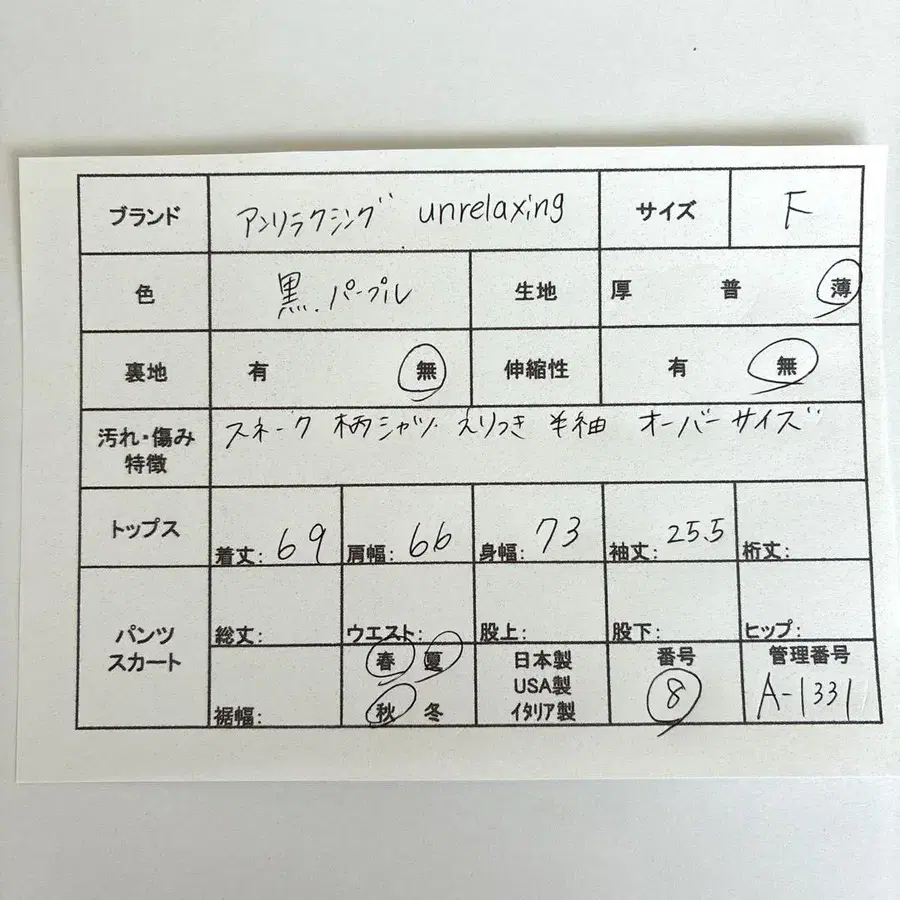 ブランド アンリラクシング unrelaxing サイズ F
色 黒.パープル 生地 厚 普 薄
裏地 有 無 伸縮性 有 無
汚れ・傷み
特徴
スネーク 柄シャツ えりつき 半袖 オーバーサイズ
トップス 着丈: 69 肩幅: 66 身幅: 73 袖丈: 25.5 裄丈:
パンツ
スカート
総丈: ウエスト: 股上: 股下: ヒップ:
裾幅:
春 夏
秋 冬
日本製
USA製
イタリア製
番号
8
管理番号
A-1331